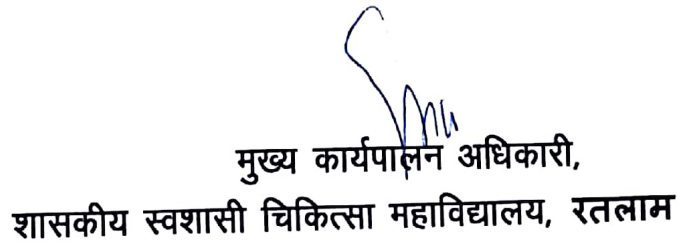 मुख्य कार्यपालन अधिकारी,
शासकीय स्वशासी चिकित्सा महाविद्यालय, रतलाम